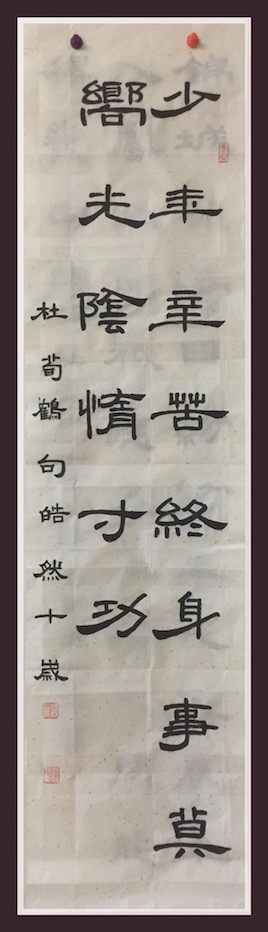 少年辛苦終身事莫
嚮光陰惰寸功
杜荀鶴句皓然十歲